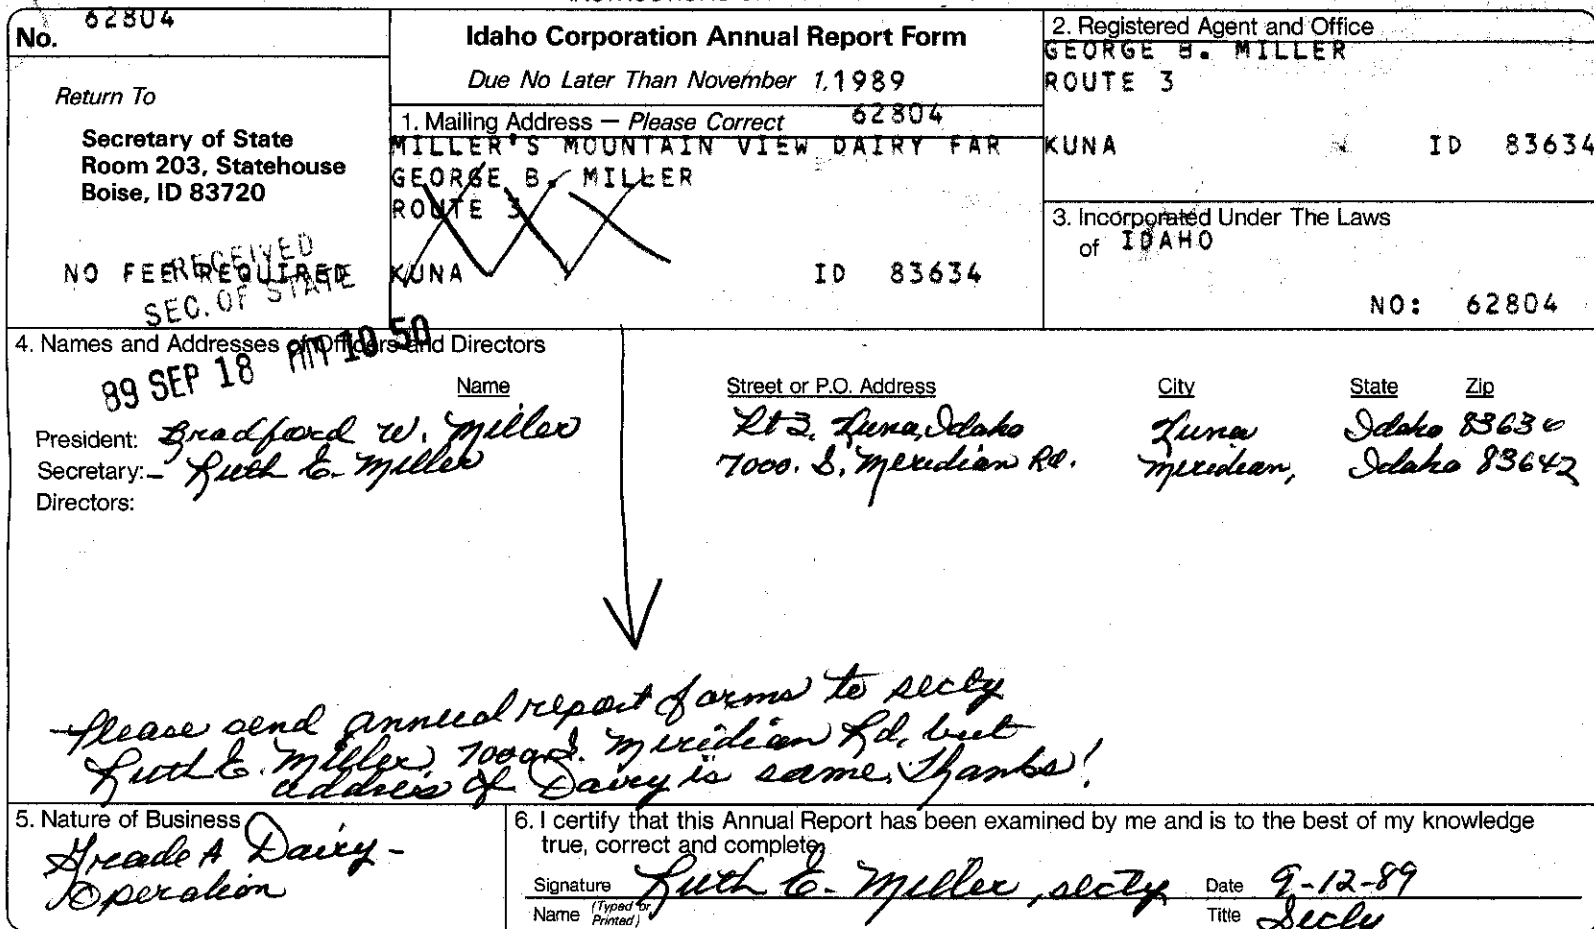 No. 62804
Return To
Secretary of State
Room 203, Statehouse
Boise, ID 83720
NO FEE REQUIRED
RECEIVED
SEC. OF STATE
89 SEP 18 AM 10 50
Idaho Corporation Annual Report Form
Due No Later Than November 1, 1989
1. Mailing Address — Please Correct 62804
MILLER'S MOUNTAIN VIEW DAIRY FAR
GEORGE B. MILLER
ROUTE 3
KUNA ID 83634
2. Registered Agent and Office
GEORGE B. MILLER
ROUTE 3
KUNA ID 83634
3. Incorporated Under The Laws
of IDAHO
NO: 62804
4. Names and Addresses of Officers and Directors
Name Street or P.O. Address City State Zip
President: Bradford W. Miller Rt 3, Kuna, Idaho Kuna Idaho 83634
Secretary: - Ruth E. Miller 7000. S. Meridian Rd. Meridian, Idaho 83642
Directors:
Please send annual report forms to secty
Ruth E. Miller, 7000 S. Meridian Rd, but
address of Dairy is same. Thanks!
5. Nature of Business
Grade A Dairy -
Operation
6. I certify that this Annual Report has been examined by me and is to the best of my knowledge
true, correct and complete.
Signature Ruth E. Miller, secty Date 9-12-89
Name (Typed or Printed) Title Secty